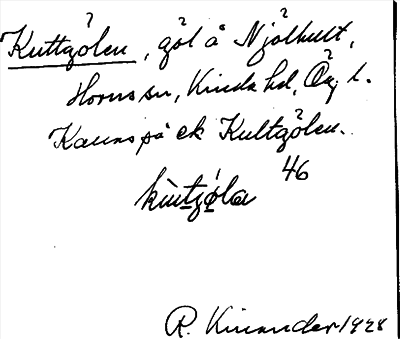 Kuttgölen, göl å Njölhult,
Horns sn, Kinda hd, Ög. l.
Kanns på ek Kultgölen.
46
kùtgǿla
R. Kinander 1928